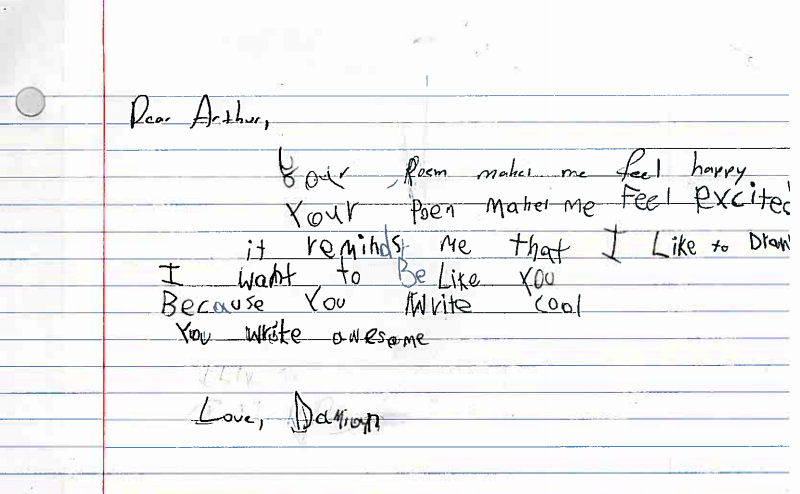 Dear Arthur,
Your Poem makes me feel happy
Your Poen Makes me Feel Excited
it reminds me that I Like to Draw
I want to Be Like YOU
Because You Write cool
You write awesome
Love, Damion